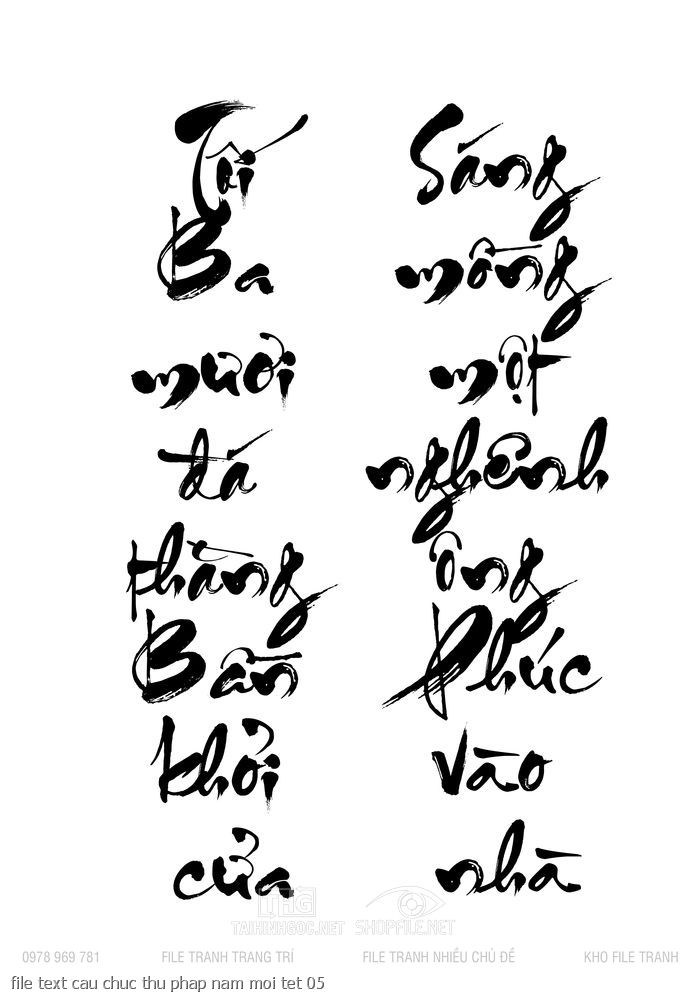 Tối
Ba
mươi
đá
thằng
Bần
khỏi
cửa
Sáng
mồng
một
nghênh
ông
Phúc
vào
nhà
THG
TAIHINHGOC.NET SHOPFILE.NET
0978 969 781 FILE TRANH TRANG TRÍ FILE TRANH NHIỀU CHỦ ĐỀ KHO FILE TRANH
file text cau chuc thu phap nam moi tet 05